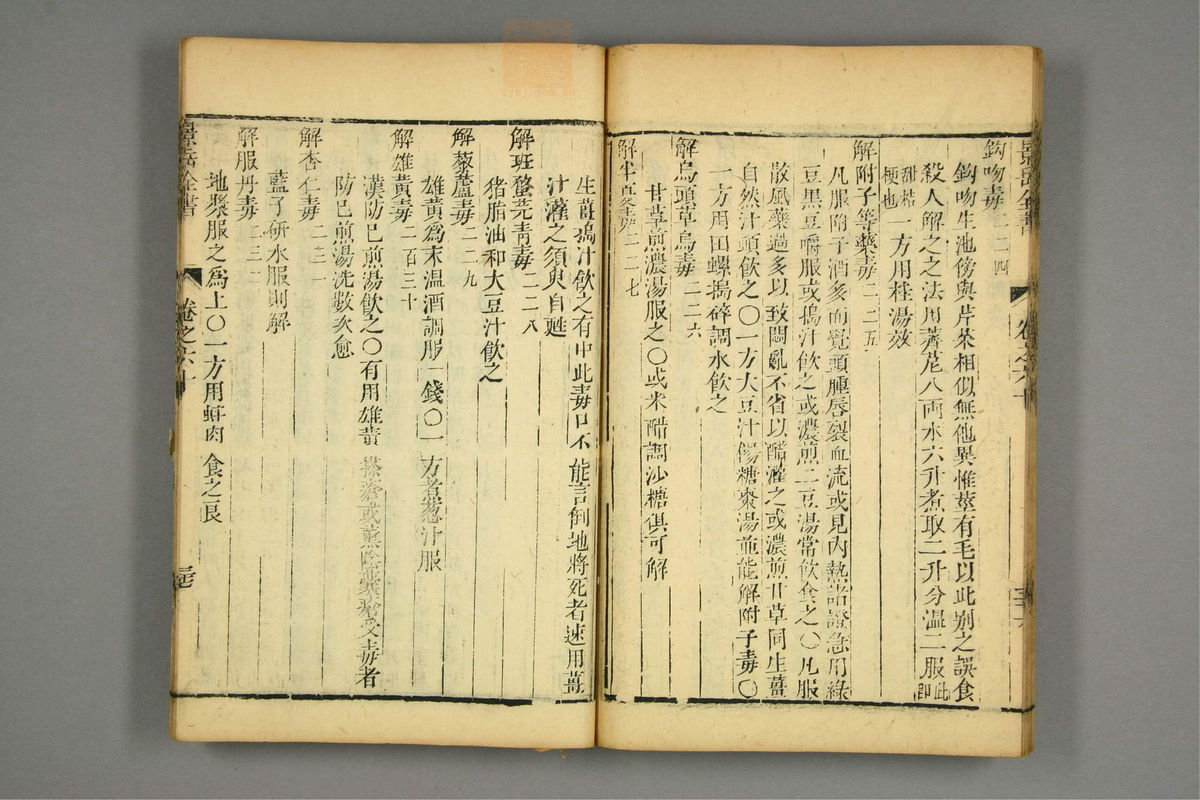 景岳全書
卷之六十
鈎吻毒二二四
鈎吻生池傍與芹菜相似無他異惟莖有毛以此別之誤食
殺人解之之法用薺苨八兩水六升煮取二升分溫二服此即
甜桔梗也一方用桂湯效
解附子等藥毒二二五
凡服附子酒多而覺頭腫唇裂血流或見內熱諸證急用綠
豆黑豆嚼服或搗汁飲之或濃煎二豆湯常飲食之〇凡服
散風藥過多以致悶亂不省以醋灌之或濃煎甘草同生薑
自然汁頭飲之〇一方大豆汁餳糖棗湯並能解附子毒〇
一方用田螺搗碎調水飲之
解烏頭草烏毒二二六
甘草煎濃湯服之〇或米醋調沙糖俱可解
解半夏毒二二七
生薑搗汁飲之有中此毒口不能言倒地將死者速用薑
汁灌之須臾自甦
解班蝥芫青毒二二八
猪脂油和大豆汁飲之
解藜蘆毒二二九
雄黃為末温酒調服一錢〇一方煮葱汁服
解雄黃毒二百三十
漢防已煎湯飲之〇有用雄黃搽瘡或熏陰囊受毒者
防已煎湯洗數次愈
解杏仁毒二三一
藍子研水服則解
解服丹毒二三二
地漿服之為上〇一方用蚌肉食之良
景岳全書
卷之六十